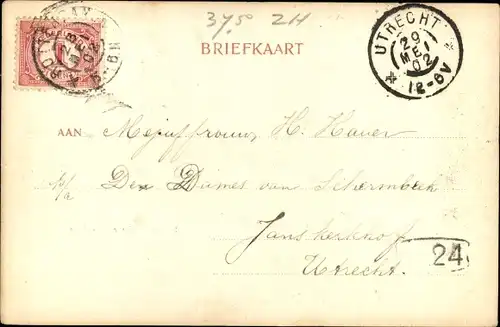 37,50 2H
BRIEFKAART
UTRECHT
29
MEI
02
12-6V
AAN Mejuffrouw H. Hauer
p/a Den Dames van Schermbeek
Janskerkhof
24
Utrecht.